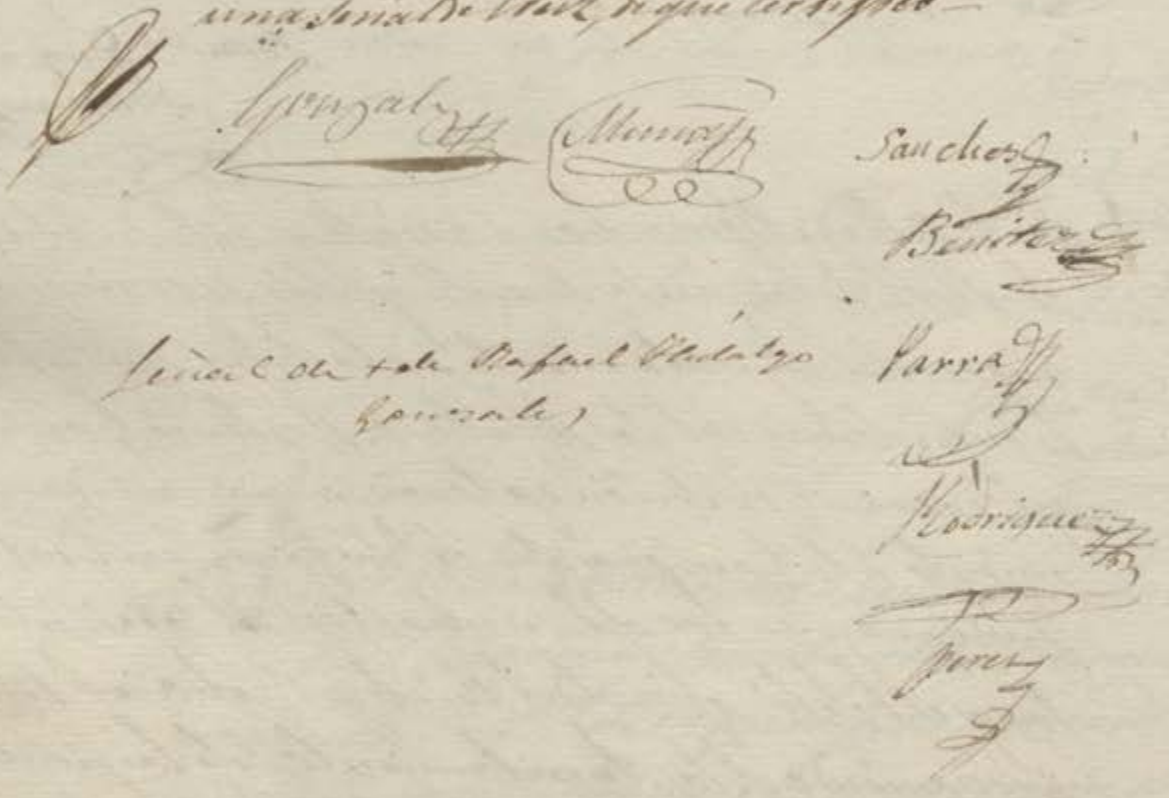 una señal de Cruz, de que certifico —
Gonzalez
Sanchez
Benitez
Parra
Señal de + de Rafael Hidalgo
Gonzales
Rodriguez
Perez